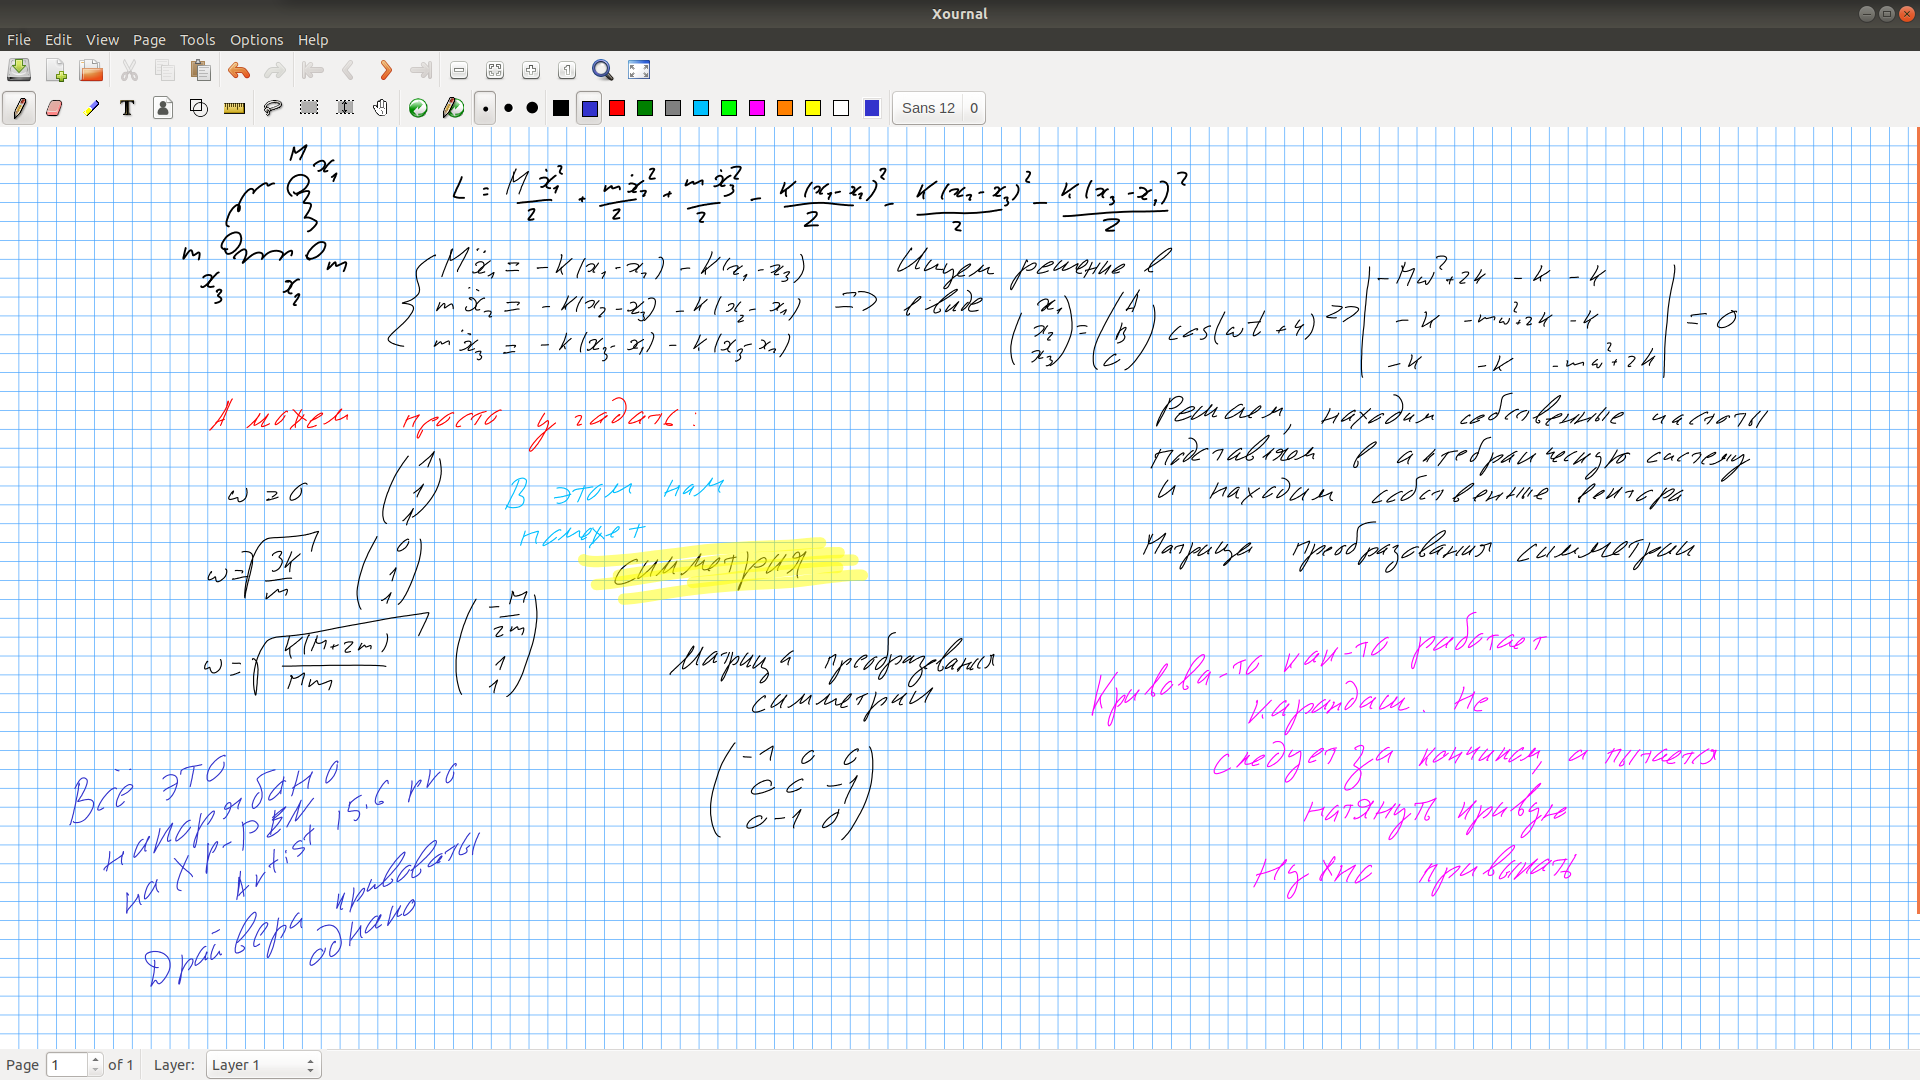 Xournal
File Edit View Page Tools Options Help
Sans 12 0
M x₁
m m
x₃ x₂
L = Mẋ₁²/2 + mẋ₂²/2 + mẋ₃²/2 - K(x₁-x₂)²/2 - K(x₂-x₃)²/2 - K(x₃-x₁)²/2
Mẍ₁ = -K(x₁-x₂) - K(x₁-x₃)
mẍ₂ = -K(x₂-x₃) - K(x₂-x₁) =>
mẍ₃ = -K(x₃-x₁) - K(x₃-x₂)
Ищем решение в
в виде (x₁ x₂ x₃) = (A B C) cos(ωt+φ) =>
| -Mω²+2K -K -K |
| -K -mω²+2K -K | = 0
| -K -K -mω²+2K |
А можем просто угадать:
ω = 0 (1 1 1)
ω = √(3K/m) (0 1 1)
ω = √(K(M+2m)/Mm) (-M/2m 1 1)
В этом нам
поможет
симметрия
Решаем, находим собственные частоты
подставляем в алгебраическую систему
и находим собственные вектора
Матрица преобразования симметрии
Матрица преобразования
симметрии
(-1 0 0
0 0 -1
0 -1 0)
Кривова-то как-то работает
карандаш. Не
следует за кончиком, а пытается
натянуть кривую
Нужно привыкать
Всё это
на XP-PEN
Artist 15.6 pro
Драйвера кривоваты
однако
Page 1 of 1 Layer: Layer 1